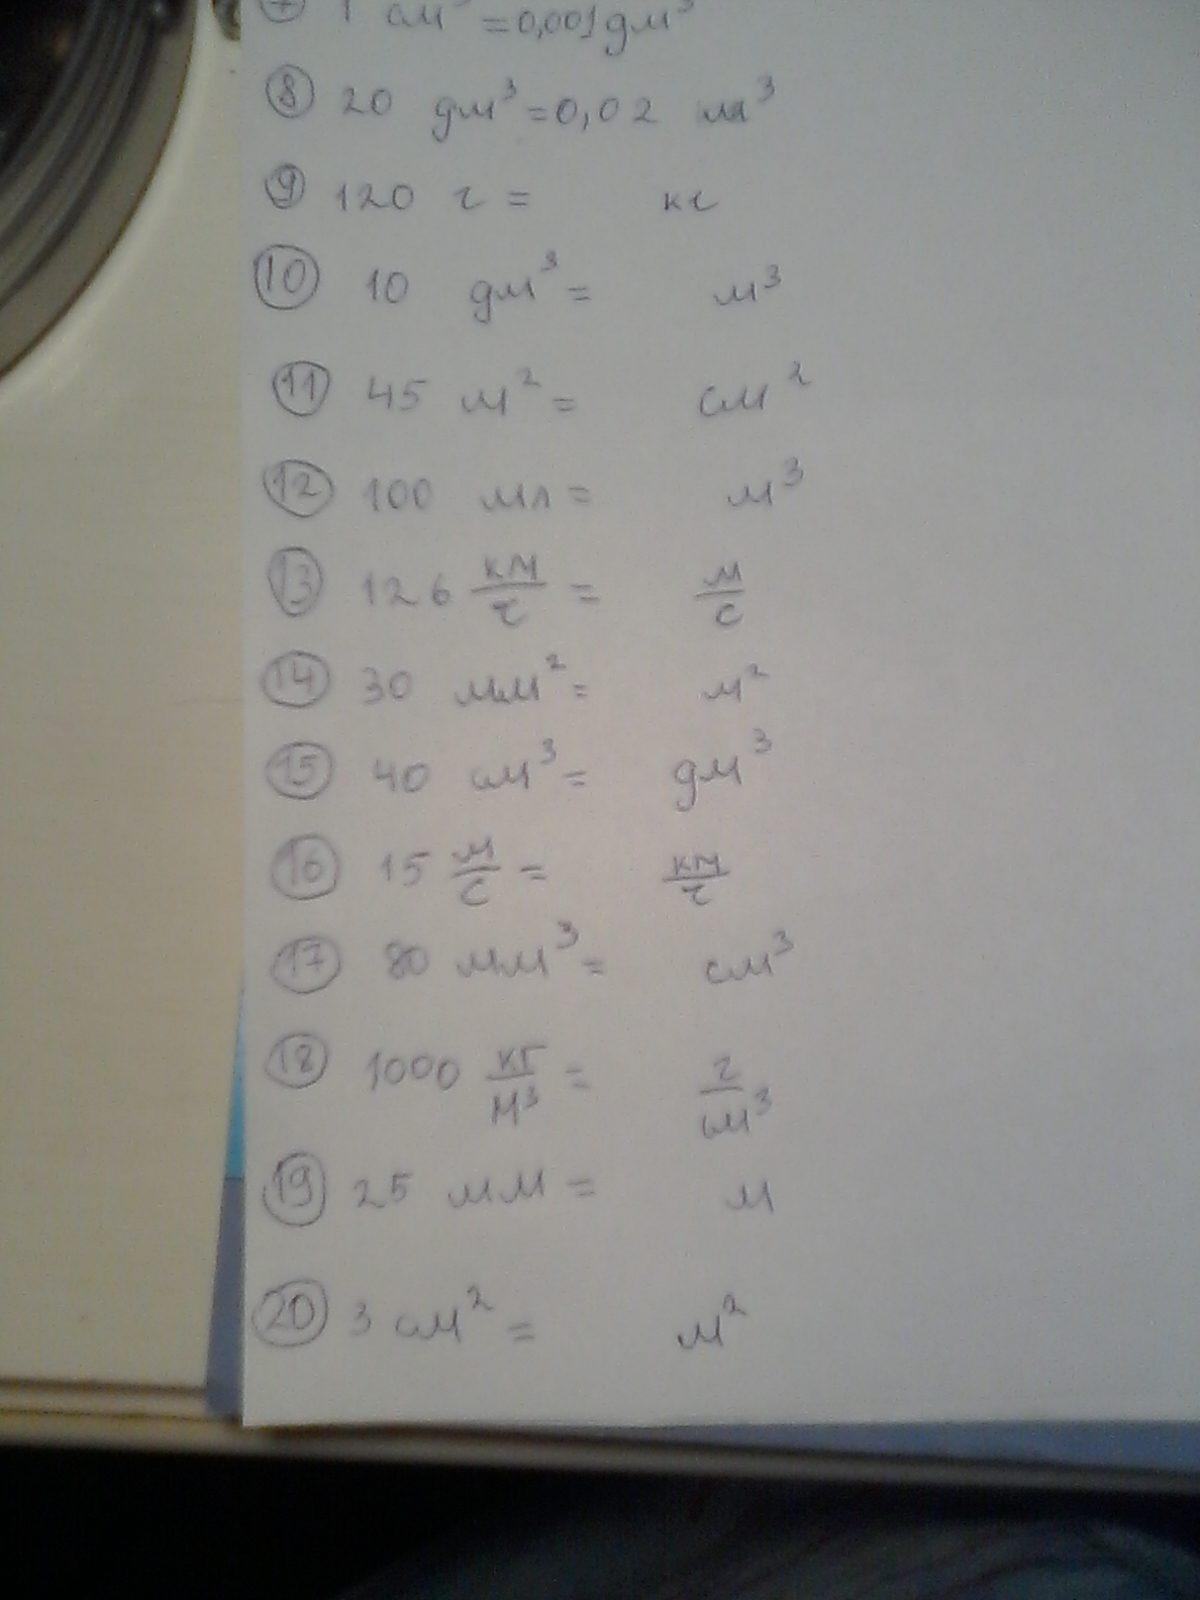 ⑦ 1 см³ = 0,001 дм³
⑧ 20 дм³ = 0,02 м³
⑨ 120 г = кг
⑩ 10 дм³ = м³
⑪ 45 м² = см²
⑫ 100 мл = м³
⑬ 126 км/ч = м/с
⑭ 30 мм² = м²
⑮ 40 см³ = дм³
⑯ 15 м/с = км/ч
⑰ 80 мм³ = см³
⑱ 1000 кг/м³ = г/см³
⑲ 25 мм = м
⑳ 3 см² = м²